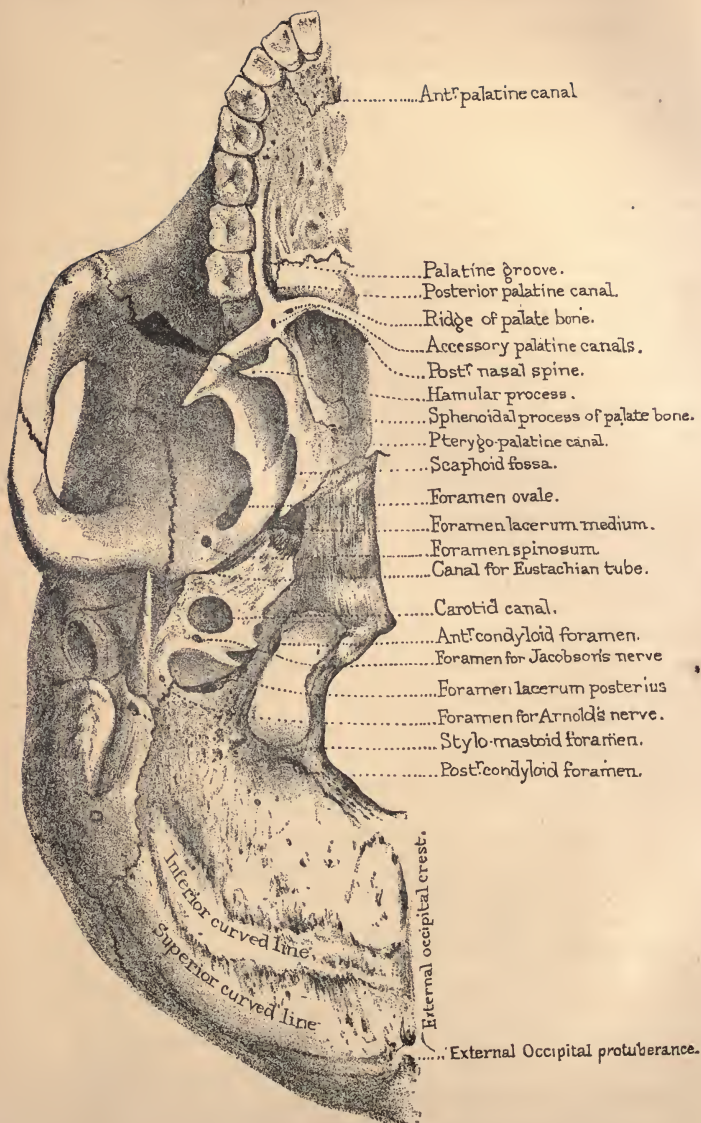 Antʳ palatine canal
Palatine groove.
Posterior palatine canal.
Ridge of palate bone.
Accessory palatine canals.
Postʳ nasal spine.
Hamular process.
Sphenoidal process of palate bone.
Pterygo-palatine canal.
Scaphoid fossa.
Foramen ovale.
Foramen lacerum medium.
Foramen spinosum
Canal for Eustachian tube.
Carotid canal.
Antʳ condyloid foramen.
Foramen for Jacobson's nerve
Foramen lacerum posterius
Foramen for Arnold's nerve.
Stylo-mastoid foramen.
Postʳ condyloid foramen.
Inferior curved line
Superior curved line
External occipital crest.
External Occipital protuberance.